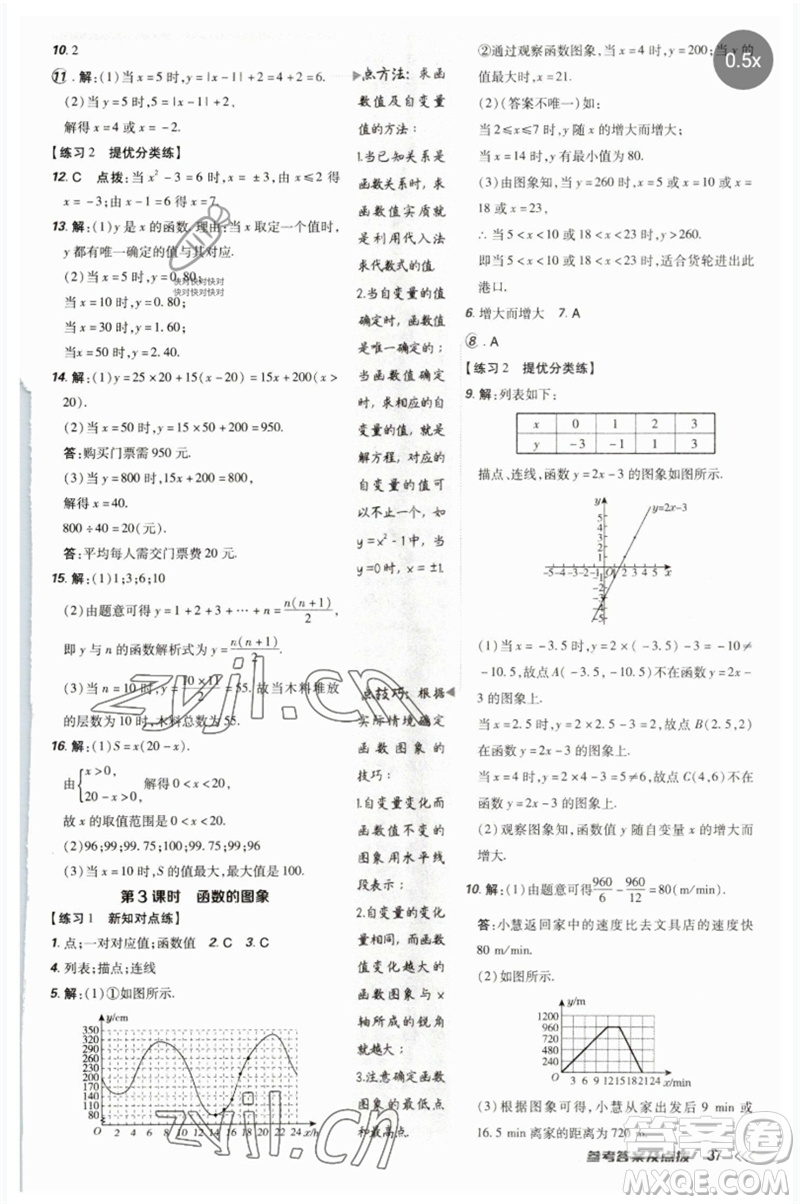 10. 2
11. 解:(1)当 x=5 时,y=|x-1|+2=6.
(2)当 y=5 时,|x-1|+2=5,
解得 x=4 或 x=-2.
【练习2 提优分类练】
12. C 点拨:当 x²-3=6 时,x=±3,由 x≤2 得
x=-3;由 x+1=6 得 x=7
13. 解:(1)y 是 x 的函数.理由:当 x 取定一个值时,
y 都有唯一确定的值与其对应.
(2)当 x=2 时,y=0.80;
当 x=5 时,y=0.80;
当 x=30 时,y=1.60;
当 x=11 时,y=3.20.
14. 解:(1)y=25×20+15(x-20)=15x+200(x>
20).
(2)当 x=50 时,y=15×50+200=950.
答:购买门票需 950 元.
(3)当 y=800 时,15x+200=800,
解得 x=40.
800÷40=20(元).
答:平均每人需交门票费 20 元.
15. 解:(1)1;3;6;10
(2)由题意可得 y=1+2+3+⋯+n=n(n+1)/2,
即 y 与 n 的函数解析式为 y=n(n+1)/2.
(3)当 n=10 时,y=10×11/2=55.故当木料堆放
的层数为 10 时,木料总数为 55.
16. 解:(1)S=x(20-x).
由{x>0, 20-x>0, 解得 0<x<20,
故 x 的取值范围是 0<x<20.
(2)96;99;99.75;100;99.75;99;96
(3)当 x=10 时,S 的值最大,最大值是 100.
第3课时 函数的图象
【练习1 新知对点练】
1. 点;一对对应值;函数值 2. C 3. C
4. 列表;描点;连线
5. 解:(1)①如图所示.
y/cm
350
320
290
260
230
200
170
140
110
80
O 2 4 6 8 10 12 14 16 18 20 22 24 x/h
点方法:求函
数值及自变量
值的方法:
1.当已知关系是
函数关系时,求
函数值实质就
是利用代入法
求代数式的值.
2.当自变量的值
确定时,函数值
是唯一确定的;
当函数值确定
时,求相应的自
变量的值,就是
解方程,对应的
自变量的值可
以不止一个,如
y=x²-1中,当
y=0时,x=±1.
点技巧:根据
实际情境确定
函数图象的
技巧:
1.自变量变化而
函数值不变的
图象用水平线
段表示;
2.自变量的变化
量相同,而函数
值变化越大的
函数图象与x
轴所成的锐角
就越大;
3.注意确定函数
图象的最低点
和最高点.
②通过观察函数图象,当 x=4 时,y=200;当 y 的
值最大时,x=21.
(2)(答案不唯一)如:
当 2≤x≤7 时,y 随 x 的增大而增大;
当 x=14 时,y 有最小值,为 80.
(3)由图象知,当 y=260 时,x=5 或 x=10 或 x=
18 或 x=23,
∴当 5<x<10 或 18<x<23 时,y>260.
即当 5<x<10 或 18<x<23 时,适合货轮进出此
港口.
6. 增大而增大 7. A
8. A
【练习2 提优分类练】
9. 解:列表如下:
x 0 1 2 3
y -3 -1 1 3
描点、连线,函数 y=2x-3 的图象如图所示.
y
y=2x-3
5
4
3
2
1
-5-4-3-2-1 O 1 2 3 4 5 x
(1)当 x=-3.5 时,y=2×(-3.5)-3=-10≠
-10.5,故点 A(-3.5,-10.5)不在函数 y=2x-
3 的图象上.
当 x=2.5 时,y=2×2.5-3=2,故点 B(2.5,2)
在函数 y=2x-3 的图象上.
当 x=4 时,y=2×4-3=5≠6,故点 C(4,6)不在
函数 y=2x-3 的图象上.
(2)观察图象知,函数值 y 随自变量 x 的增大而
增大.
10. 解:(1)由题意可得960/6-960/12=80(m/min).
答:小慧返回家中的速度比去文具店的速度快
80 m/min.
(2)如图所示.
y/m
1200
960
720
480
240
O 3 6 9 12 15 18 21 24 x/min
(3)根据图象可得,小慧从家出发后 9 min 或
16.5 min 离家的距离为 720 m.
参考答案及点拨 37
0.5x
快对快对快对
快对快对快对
zyjl.cn
zyjl.cn
答案圈
MXQE.COM